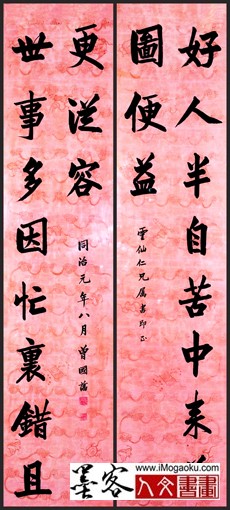 好人半自苦中來
圖便益
雲仙仁兄屬書即正
世事多因忙裏錯且
更從容
同治元年八月曾國藩
墨客
www.iMogaoku.com
人文書畫